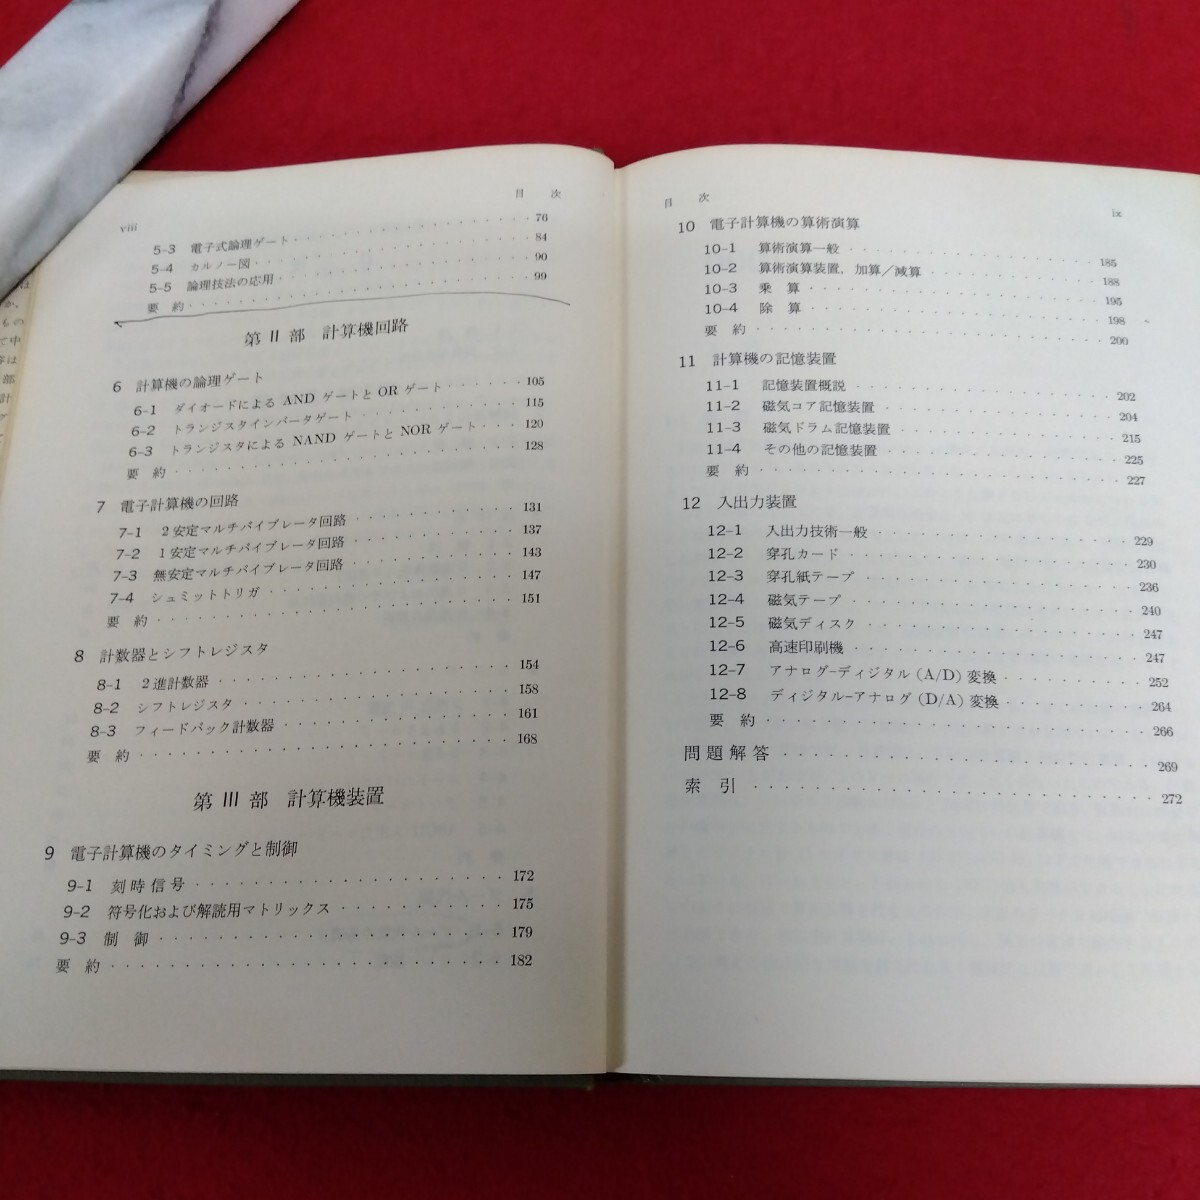 は
か,
もの
て中
等は
部
計
グ
目 次
viii
5-3 電子式論理ゲート 76
5-4 カルノー図 84
5-5 論理技法の応用 90
要 約 99
第 II 部 計算機回路
6 計算機の論理ゲート
6-1 ダイオードによる AND ゲートと OR ゲート 105
6-2 トランジスタインバータゲート 115
6-3 トランジスタによる NAND ゲートと NOR ゲート 120
要 約 128
7 電子計算機の回路
7-1 2安定マルチバイブレータ回路 131
7-2 1安定マルチバイブレータ回路 137
7-3 無安定マルチバイブレータ回路 143
7-4 シュミットトリガ 147
要 約 151
8 計数器とシフトレジスタ
8-1 2進計数器 154
8-2 シフトレジスタ 158
8-3 フィードバック計数器 161
要 約 168
第 III 部 計算機装置
9 電子計算機のタイミングと制御
9-1 刻時信号 172
9-2 符号化および解読用マトリックス 175
9-3 制 御 179
要 約 182
目 次
ix
10 電子計算機の算術演算
10-1 算術演算一般 185
10-2 算術演算装置, 加算/減算 188
10-3 乗 算 195
10-4 除 算 198
要 約 200
11 計算機の記憶装置
11-1 記憶装置概説 202
11-2 磁気コア記憶装置 204
11-3 磁気ドラム記憶装置 215
11-4 その他の記憶装置 225
要 約 227
12 入出力装置
12-1 入出力技術一般 229
12-2 穿孔カード 230
12-3 穿孔紙テープ 236
12-4 磁気テープ 240
12-5 磁気ディスク 247
12-6 高速印刷機 247
12-7 アナログ-ディジタル (A/D) 変換 252
12-8 ディジタル-アナログ (D/A) 変換 264
要 約 266
問題解答 269
索 引 272